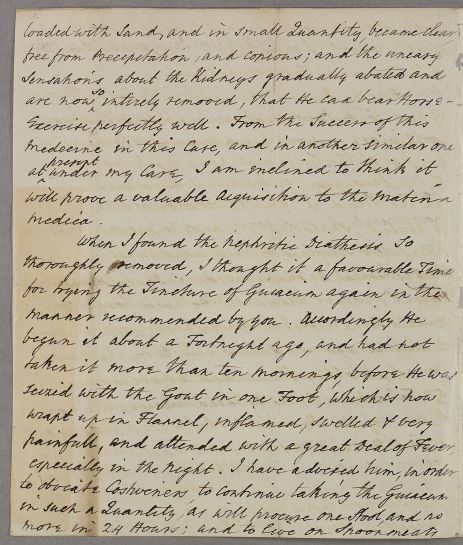 loaded with Sand, and in small Quantity, became clear
free from Precepitation, and copious; and the uneasy
Sensations about the Kidneys gradually abated and
are now so intirely removed, that He can bear Horse-
Exercise perfectly well. From the Success of this
Medecine in this Case, and in another similar one
at present under my Care, I am enclined to think it
will prove a valuable Acquisition to the Materia
Medica.
When I found the Nephritic Diathesis so
thoroughly removed, I thought it a favourable Time
for trying the Tincture of Guiacum again in the
manner recommended by you. Accordingly He
begun it about a Fortnight ago, and had not
taken it more than ten mornings, before He was
seized with the Gout in one Foot, which is now
wrapt up in Flannel, inflamed, swelled & very
painfull, and attended with a great Deal of Fever,
especially in the night. I have advised him, in order
to obviate Costiveness, to continue taking the Guiacum
in such a Quantity, as will procure one Stool, and no
more in 24 Hours: and to live on Spoonmeats